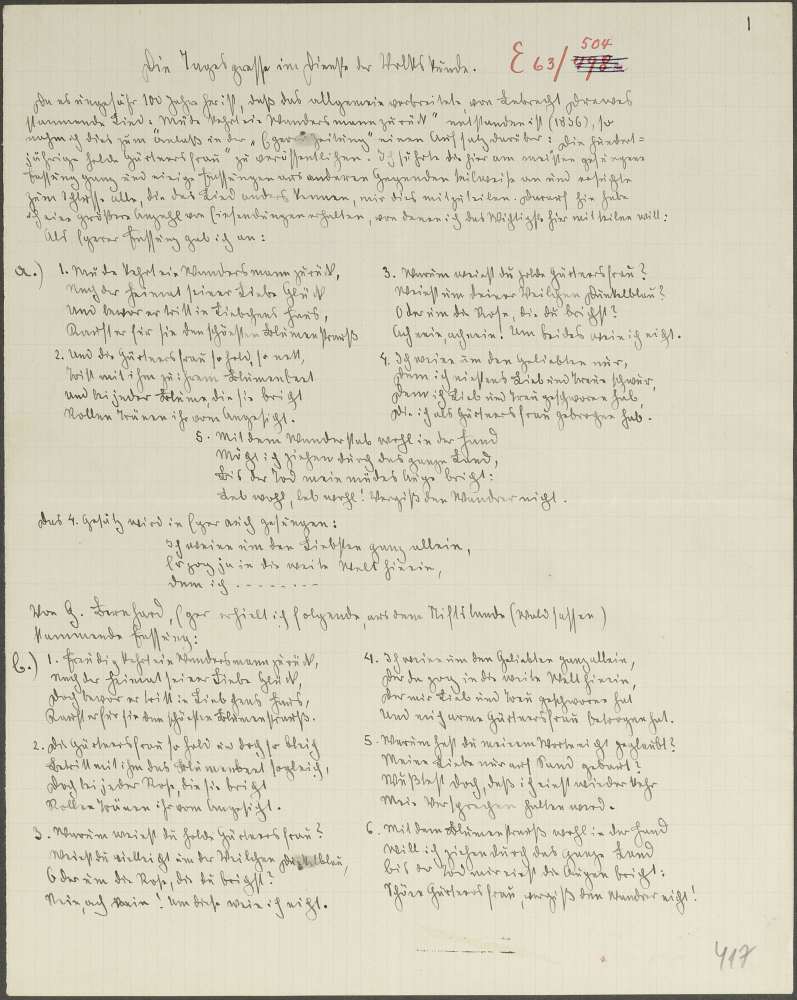 1
Die Tagespresse im Dienste der Volkskunde. E 63/504
Da es ungefähr 100 Jahre her ist, daß das allgemein verbreitete, von Lebrecht Drewes
stammende Lied: "Müde kehrt ein Wandersmann zurück" entstanden ist (1836), so
nahm ich dies zum Anlaß in der "Egerer Zeitung" einen Aufsatz darüber: "Die hundert=
jährige holde Gärtnersfrau" zu veröffentlichen. Ich führte die hier am meisten gesungene
Fassung ganz und einige Fassungen aus anderen Gegenden teilweise an und ersuchte
zum Schlusse alle, die das Lied anders kennen, mir dies mitzuteilen. Darauf hin habe
ich eine größere Anzahl von Einsendungen erhalten, von denen ich das Wichtigste hier mitteilen will:
Als Egerer Fassung gab ich an:
a.) 1. Müde kehrt ein Wandersmann zurück,
Nach der Heimat seiner Liebe Glück
Und bevor er tritt in Liebchens Haus,
Kauft er für sie den schönsten Blumenstrauß
2. Und die Gärtnersfrau so hold, so nett,
Tritt mit ihm zu ihrem Blumenbeet
Und bei jeder Blume, die sie bricht
Rollen Tränen ihr vom Angesicht.
3. Warum weinst du holde Gärtnersfrau?
Weinst um deiner Veilchen Dunkelblau?
Oder um die Rose, die du brichst?
Ach nein, ach nein! Um beides weine ich nicht.
4. Ich weine um den Geliebten nur,
Dem ich einstens Lieb und Treue schwur,
Dem ich Lieb und Treu geschworen hab,
Die ich als Gärtnersfrau gebrochen hab.
5. Mit dem Wanderstab wohl in der Hand
Möcht ich ziehen durch das ganze Land,
Bis der Tod mein müdes Auge bricht:
Leb wohl, leb wohl! Vergiß den Wandrer nicht.
Das 4. Gesätz wird in Eger auch gesungen:
Ich weine um den Liebsten ganz allein,
Er zog ja in die weite Welt hinein,
Dem ich - - - - - - - -
Von G. Bernhard, Eger erhielt ich folgende, aus dem Stiftslande (Waldsassen)
stammende Fassung:
b.) 1. Freudig kehrt ein Wandersmann zurück,
Nach der Heimat seiner Liebe Glück,
Doch bevor er tritt in Liebchens Haus,
Kauft er für sie den schönsten Blumenstrauß.
2. Die Gärtnersfrau so hold und doch so bleich
Betritt mit ihm das Blumenbeet sogleich,
Doch bei jeder Rose, die sie bricht
Rollen Tränen ihr vom Angesicht.
3. Warum weinst du holde Gärtnersfrau?
Weinst du vielleicht um der Veilchen Dunkelblau,
Oder um die Rose, die du brichst?
Nein, ach nein! Um diese weine ich nicht.
4. Ich weine um den Geliebten ganz allein,
Der da zog in die weite Welt hinein,
Der mir Lieb und Treu geschworen hat
Und mich arme Gärtnersfrau betrogen hat.
5. Warum hast du meinem Worte nicht geglaubt?
Meine Liebe nur auf Sand gebaut?
Wußtest doch, daß ich einst wieder kehr
Mein Versprechen halten werd.
6. Mit dem Blumenstrauß wohl in der Hand
Will ich ziehen durch das ganze Land
Bis der Tod mir einst die Augen bricht:
Schöne Gärtnersfrau, vergiß den Wandrer nicht!
417